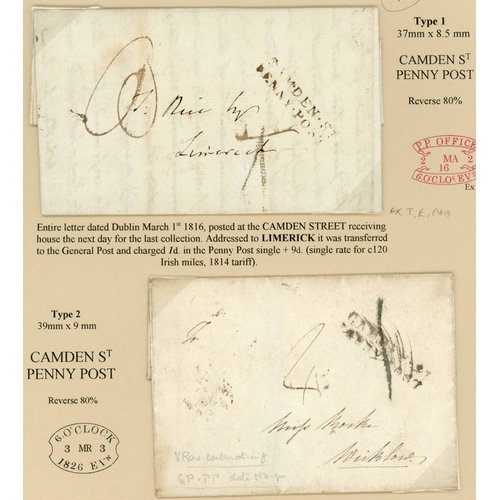 Type 1
37mm x 8.5 mm
CAMDEN ST
PENNY POST
Reverse 80%
P.P OFFICE
2 MA 2
16
6.O'CLOK EVS
Ex
CAMDEN-ST
PENNY-POST
T. Rice Esq
Limerick
Entire letter dated Dublin March 1st 1816, posted at the CAMDEN STREET receiving
house the next day for the last collection. Addressed to LIMERICK it was transferred
to the General Post and charged 1d. in the Penny Post single + 9d. (single rate for c120
Irish miles, 1814 tariff).
Type 2
39mm x 9 mm
CAMDEN ST
PENNY POST
Reverse 80%
6.O'CLOCK
3 MR 3
1826 EVS
2
Miss
Wicklow
V Rare combination of
GP + PP date stamps